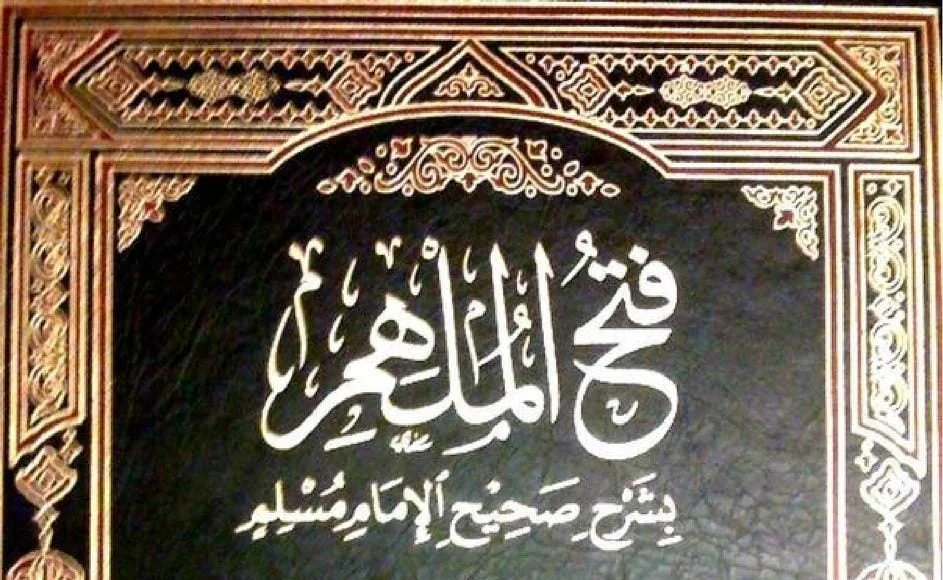 فتحُ المُلْهِم
بِشَرْحِ صَحِيْحِ الإِمَامِ مُسْلِمٍ